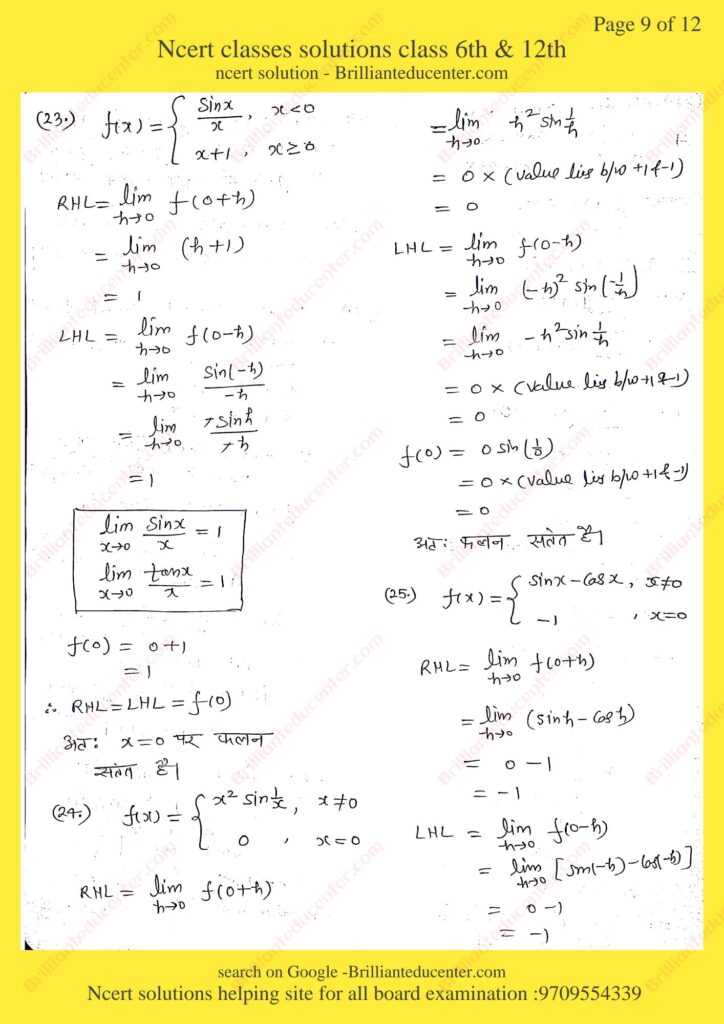 Page 9 of 12
Ncert classes solutions class 6th & 12th
ncert solution - Brillianteducenter.com
(23.) f(x) = { sinx/x , x<0
x+1 , x≥0
RHL = lim h→0 f(0+h)
= lim h→0 (h+1)
= 1
LHL = lim h→0 f(0-h)
= lim h→0 sin(-h)/-h
= lim h→0 -sinh/-h
= 1
lim x→0 sinx/x = 1
lim x→0 tanx/x = 1
f(0) = 0+1
= 1
∴ RHL = LHL = f(0)
अतः x=0 पर फलन
सतत है।
(24.) f(x) = { x² sin 1/x , x≠0
0 , x=0
RHL = lim h→0 f(0+h)
= lim h→0 h² sin 1/h
= 0 × (value lies b/w +1 & -1)
= 0
LHL = lim h→0 f(0-h)
= lim h→0 (-h)² sin(-1/h)
= lim h→0 -h² sin 1/h
= 0 × (value lies b/w +1 & -1)
= 0
f(0) = 0 sin(1/0)
= 0 × (value lies b/w +1 & -1)
= 0
अतः फलन सतत है।
(25.) f(x) = { sinx - cosx , x≠0
-1 , x=0
RHL = lim h→0 f(0+h)
= lim h→0 (sinh - cosh)
= 0 - 1
= -1
LHL = lim h→0 f(0-h)
= lim h→0 [sin(-h) - cos(-h)]
= 0 - 1
= -1
search on Google -Brillianteducenter.com
Ncert solutions helping site for all board examination :9709554339